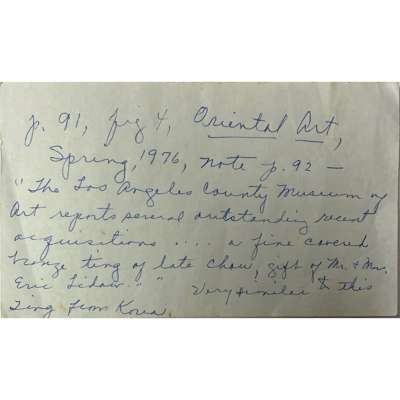 p. 91, fig 4, Oriental Art,
Spring, 1976, note p. 92 —
"The Los Angeles County Museum of
Art reports several outstanding recent
acquisitions .... a fine covered
bronze ting of late Chou, gift of Mr. & Mrs.
Eric Lidow." Very similar to this
Ting from Korea.